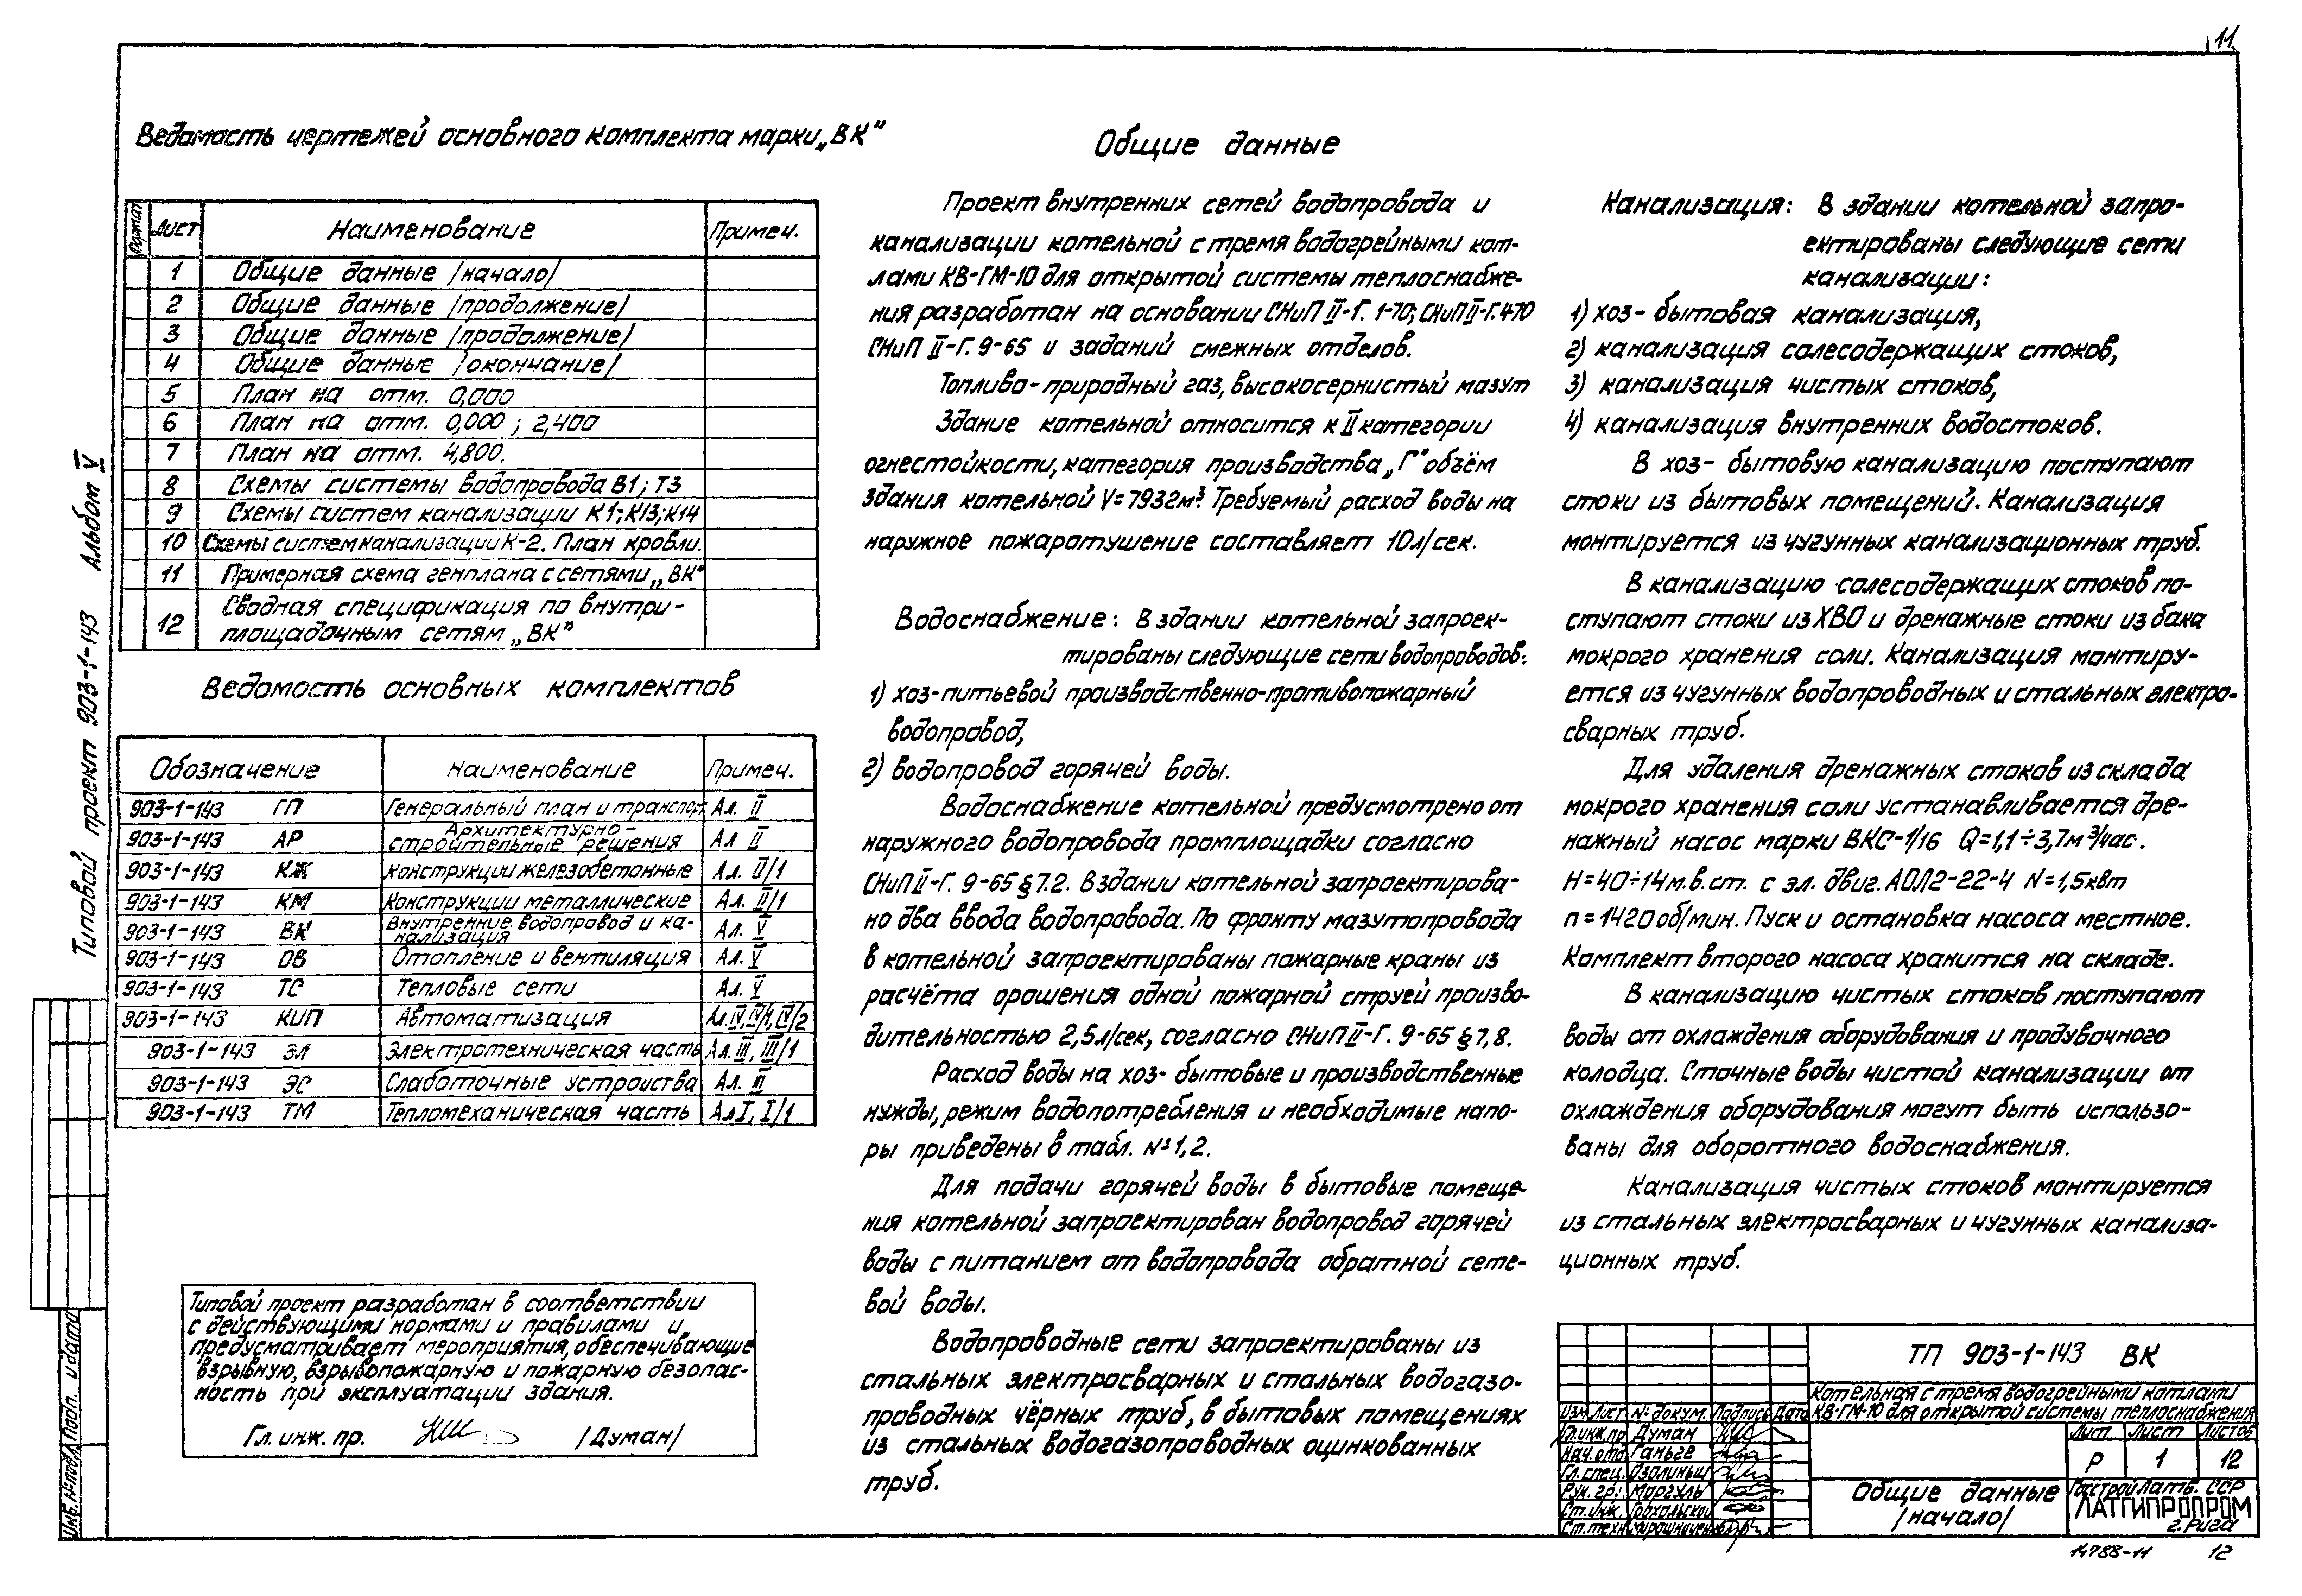 11
Ведомость чертежей основного комплекта марки „ВК"
Формат Лист Наименование Примеч.
1 Общие данные /начало/
2 Общие данные /продолжение/
3 Общие данные /продолжение/
4 Общие данные /окончание/
5 План на отм. 0,000
6 План на отм. 0,000; 2,400
7 План на отм. 4,800.
8 Схемы системы водопровода В1; Т3
9 Схемы систем канализации К1; К13; К14
10 Схемы систем канализации К-2. План кровли.
11 Примерная схема генплана с сетями „ВК"
12 Сводная спецификация по внутри-
площадочным сетям „ВК"
Ведомость основных комплектов
Обозначение Наименование Примеч.
903-1-143 ГП Генеральный план и транспорт Ал. II
903-1-143 АР Архитектурно-
строительные решения Ал II
903-1-143 КЖ Конструкции железобетонные Ал. II/1
903-1-143 КМ Конструкции металлические Ал. II/1
903-1-143 ВК Внутренние водопровод и ка-
нализация Ал. V
903-1-143 ОВ Отопление и вентиляция Ал. V
903-1-143 ТС Тепловые сети Ал. V
903-1-143 КИП Автоматизация Ал. IV, IV/1, IV/2
903-1-143 ЭЛ Электротехническая часть Ал. III, III/1
903-1-143 ЭС Слаботочные устроиства Ал. III
903-1-143 ТМ Тепломеханическая часть Ал I, I/1
Типовой проект разработан в соответствии
с действующими нормами и правилами и
предусматривает мероприятия, обеспечивающие
взрывную, взрывопожарную и пожарную безопас-
ность при эксплуатации здания.
Гл. инж. пр. /Думан/
Общие данные
Проект внутренних сетей водопровода и
канализации котельной с тремя водогрейными кот-
лами КВ-ГМ-10 для открытой системы теплоснабже-
ния разработан на основании СНиП II-Г. 1-70; СНиП II-Г. 4-70
СНиП II-Г. 9-65 и заданий смежных отделов.
Топливо-природный газ, высокосернистый мазут
Здание котельной относится к II категории
огнестойкости, категория производства „Г" объём
здания котельной V=7932м³. Требуемый расход воды на
наружное пожаротушение составляет 10л/сек.
Водоснабжение: В здании котельной запроек-
тированы следующие сети водопроводов:
1) хоз-питьевой производственно-противопожарный
водопровод,
2) водопровод горячей воды.
Водоснабжение котельной предусмотрено от
наружного водопровода промплощадки согласно
СНиП II-Г. 9-65 § 7.2. В здании котельной запроектирова-
но два ввода водопровода. По фронту мазутопровода
в котельной запроектированы пожарные краны из
расчёта орошения одной пожарной струей произво-
дительностью 2,5л/сек, согласно СНиП II-Г. 9-65 § 7,8.
Расход воды на хоз-бытовые и производственные
нужды, режим водопотребления и необходимые напо-
ры приведены в табл. №1,2.
Для подачи горячей воды в бытовые помеще-
ния котельной запроектирован водопровод горячей
воды с питанием от водопровода обратной сете-
вой воды.
Водопроводные сети запроектированы из
стальных электросварных и стальных водогазо-
проводных чёрных труб, в бытовых помещениях
из стальных водогазопроводных оцинкованных
труб.
Канализация: В здании котельной запро-
ектированы следующие сети
канализации:
1) хоз-бытовая канализация,
2) канализация солесодержащих стоков,
3) канализация чистых стоков,
4) канализация внутренних водостоков.
В хоз-бытовую канализацию поступают
стоки из бытовых помещений. Канализация
монтируется из чугунных канализационных труб.
В канализацию солесодержащих стоков по-
ступают стоки из ХВО и дренажные стоки из бака
мокрого хранения соли. Канализация монтиру-
ется из чугунных водопроводных и стальных электро-
сварных труб.
Для удаления дренажных стоков из склада
мокрого хранения соли устанавливается дре-
нажный насос марки ВКС-1/16 Q=1,1÷3,7м³/час.
Н=40÷14м.в.ст. с эл. двиг. АОЛ2-22-4 N=1,5квт
n=1420 об/мин. Пуск и остановка насоса местное.
Комплект второго насоса хранится на складе.
В канализацию чистых стоков поступают
воды от охлаждения оборудования и продувочного
колодца. Сточные воды чистой канализации от
охлаждения оборудования могут быть использо-
ваны для оборотного водоснабжения.
Канализация чистых стоков монтируется
из стальных электросварных и чугунных канализа-
ционных труб.
ТП 903-1-143 ВК
Котельная с тремя водогрейными котлами
КВ-ГМ-10 для открытой системы теплоснабжения
Изм. Лист № докум. Подпись Дата
Гл.инж.пр Думан
Нач.отд. Ганьге
Гл.спец. Озолиньш
Рук. гр. Моргуль
Ст.инж.
Ст.техн. Мирошниченко
Лит. Лист Листов
Р 1 12
Общие данные
/начало/
Госстрой Латв. ССР
ЛАТГИПРОПРОМ
г. Рига
Типовой проект 903-1-143 Альбом V
Инв. № подл. Подп. и дата
14788-11 12